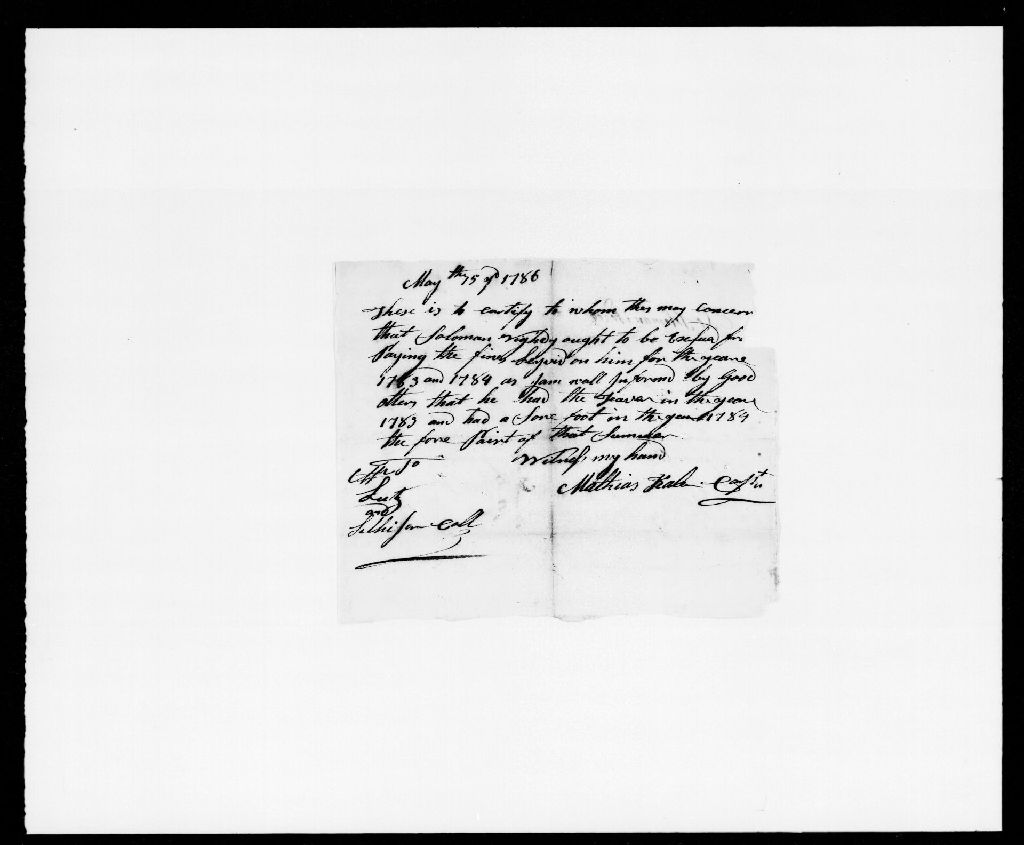 May the 15 1786
These is to certify to whom this may concern
that Soloman ought to be for
Paying the fines on him for the yeare
1783 and 1784 as I am wall Informd by Good
others that he had the feavar in the yeare
1783 and had a Sore foot in the year 1784
the fore Pairt of that Summer
Witness my hand
Mathias Capt
To
Leut
and
Coll